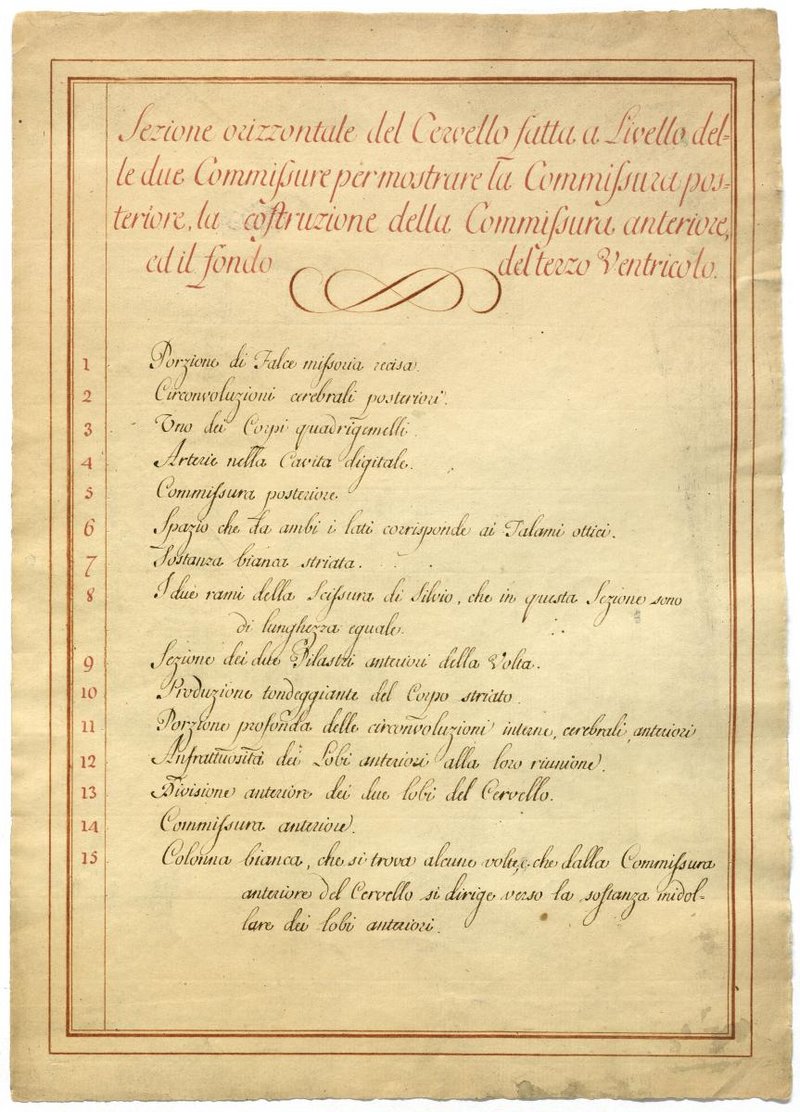 Sezione orizzontale del Cervello fatta a Livello del=
le due Commiſsure per mostrare la Commiſsura pos=
teriore, la coſtruzione della Commiſsura anteriore,
ed il fondo del terzo Ventricolo.
1 Porzione di Falce miſsoria recisa.
2 Circonvoluzioni cerebrali posteriori.
3 Uno dei Corpi quadrigemelli.
4 Arterie nella Cavita digitale.
5 Commiſsura posteriore
6 Spazio che da ambi i lati corrisponde ai Talami ottici.
7 Sostanza bianca striata.
8 I due rami della Sciſsura di Silvio, che in questa Sezione sono
di lunghezza eguale.
9 Sezione dei due Pilastri anteriori della Volta.
10 Produzione tondeggiante del Corpo striato
11 Porzione profonda delle circonvoluzioni interne, cerebrali, anteriori
12 Anfrattuosità dei Lobi anteriori alla loro riunione.
13 Divisione anteriore dei due lobi del Cervello.
14 Commiſsura anteriore.
15 Colonna bianca, che si trova alcune volte, e che dalla Commiſsura
anteriore del Cervello si dirige verso la soſtanza midol=
lare dei lobi anteriori.